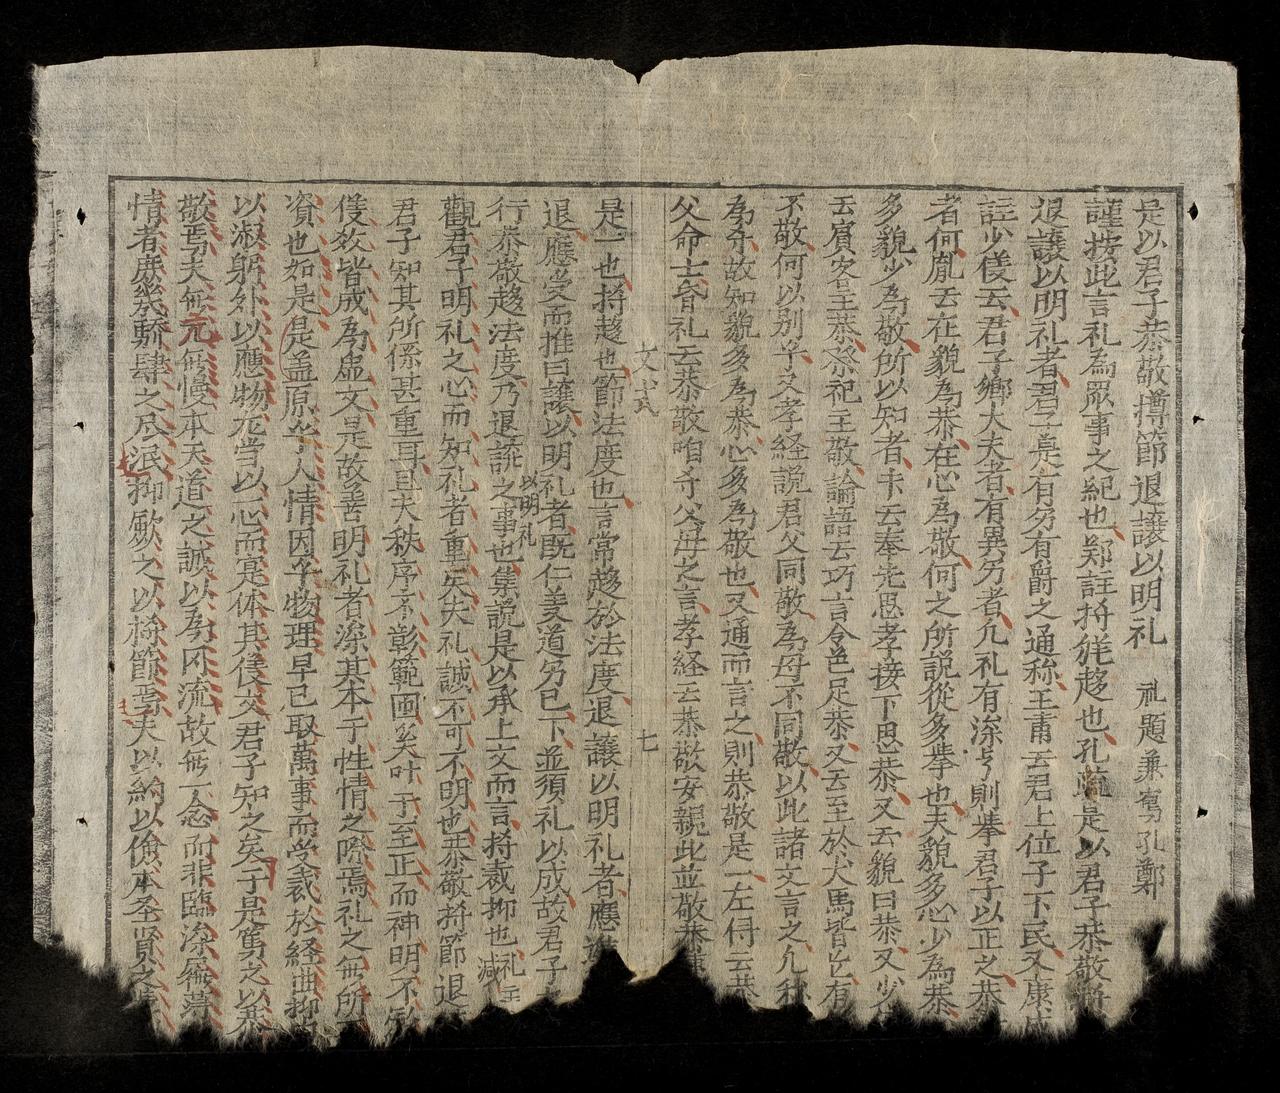 是以君子恭敬撙節退讓以明礼 礼題兼寓孔鄭
謹按此言礼為眾事之紀也鄭註撙猶趍也孔疏是以君子恭敬撙
退讓以明礼者君子是有旁有爵之通称王肅云君上位子下民又康成
註少儀云君子鄉大夫者有異旁者凢礼有深則举君子以正之恭
者何胤云在貌為恭在心為敬何之所說從多举也夫貌多心少為恭
多貌少為敬所以知者云奉先思孝接下思恭又云貌曰恭又少
云賔客主恭祭祀主敬論語云巧言令色足恭又云至於犬馬皆有
不敬何以別乎又孝経說君父同敬為母不同敬以此諸文言之凢称
為故知貌多為恭心多為敬也又通而言之則恭敬是一左傳云恭
父命士昏礼云恭敬父母之言孝経云恭敬安親此並敬恭
文式 七
是一也撙趍也節法度也言常趍於法度退讓以明礼者應進
退應受而推曰讓以明礼者既仁義道已下並須礼以成故君子
行恭敬趍法度乃退讓之事也集說是以承上文而言撙裁抑也礼主减
以明礼
觀君子明礼之心而知礼者重矣夫礼誠不可不明也恭敬撙節退
君子知其所係甚重耳且夫秩序不彰範圍矣叶于至正而神明不
僅效皆成為虛文是故善明礼者深其本于性情之際焉礼之無所
資也如是是盖原乎人情因乎物理早已取萬事而受裁於経曲抑
以淑躬外以應物允当以心而寔体其後文君子知之矣于是篤之以恭
敬焉夫無元無慢本天道之誠以為同流故無一念而非臨深履薄
情者庶幾驕肆之尽泯抑厥之以撙節焉夫以約以儉本圣賢之